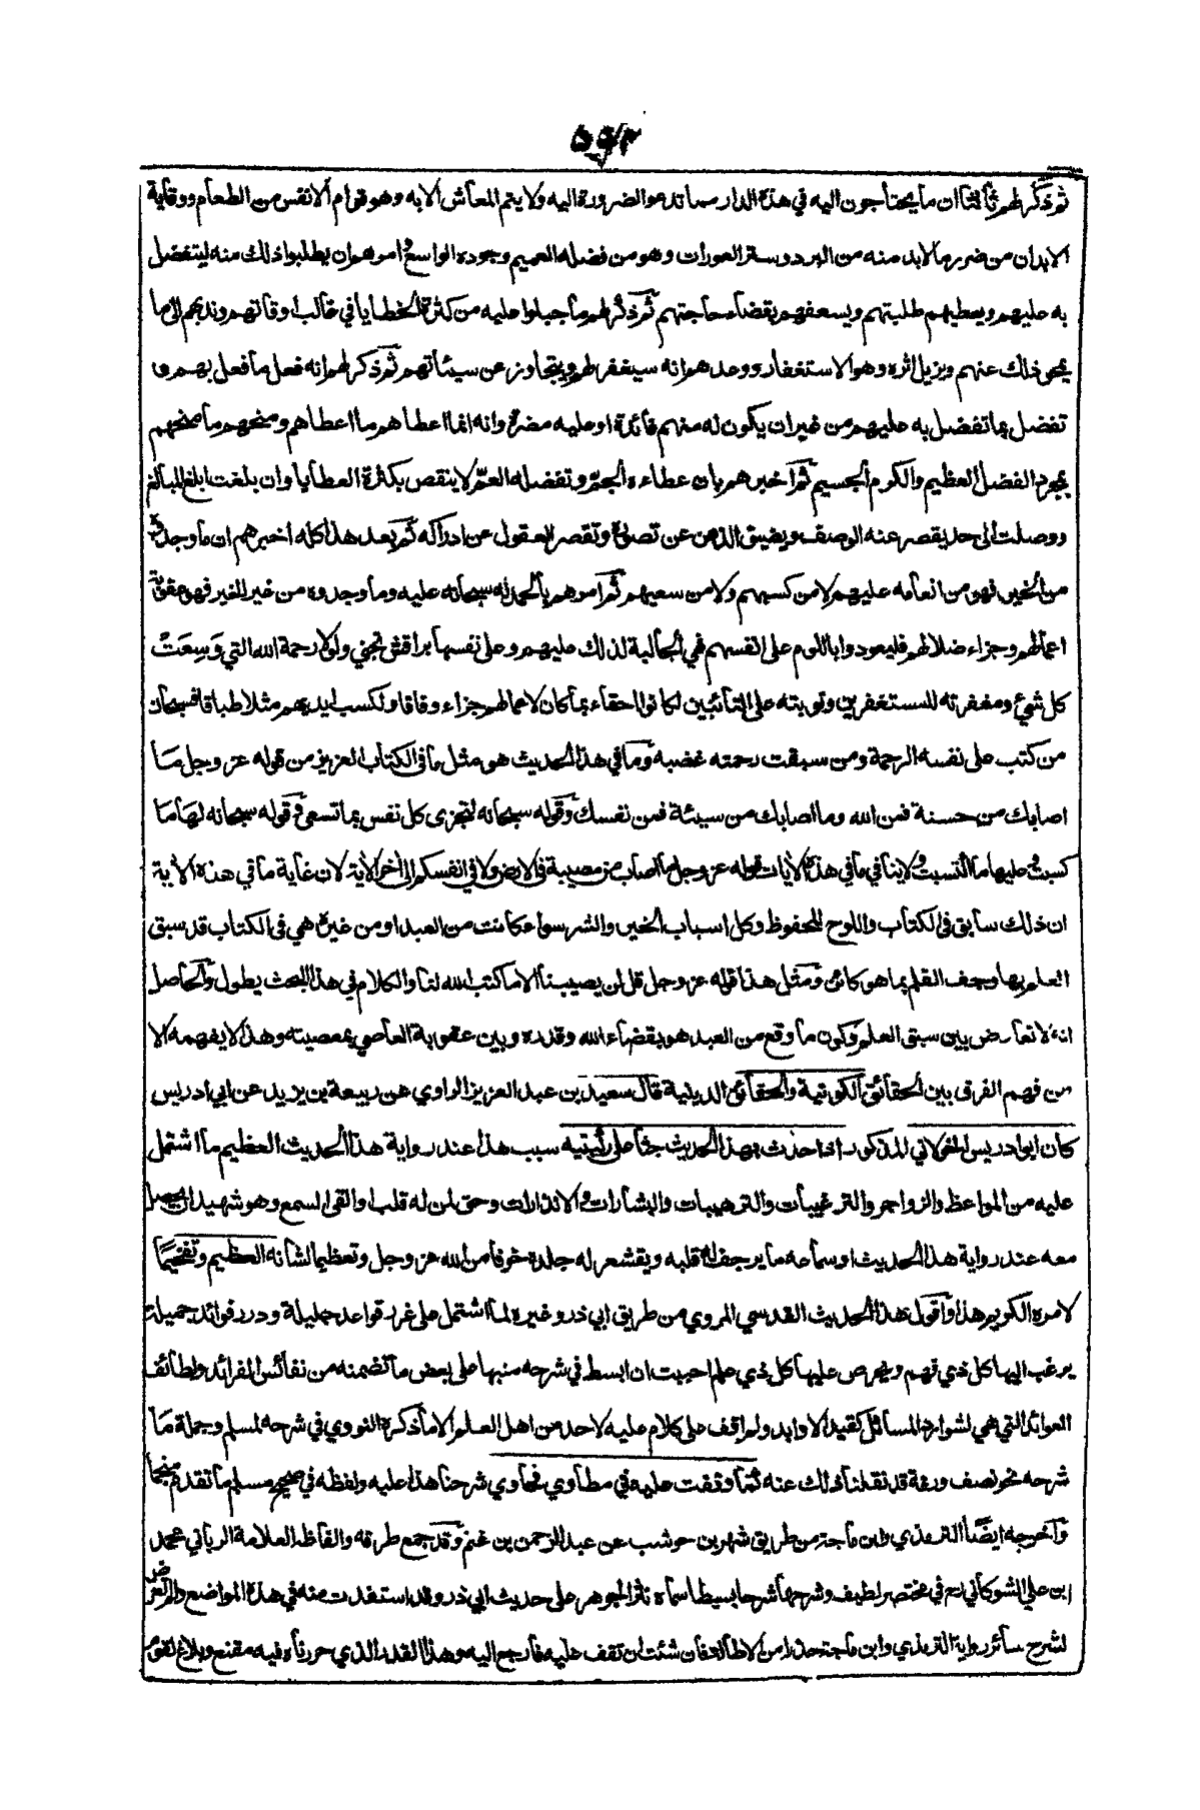 ٥٦٢
ثم ذكر لهم ثالثا ان ما يحتاجون اليه في هذه الدار مما تدعو الضرورة اليه ولا يتم المعاش الا به وهو قوام الانفس من الطعام ووقاية
الابدان من ضرر ما لابد منه من البرد وستر العورات وهو من فضله العميم وجوده الواسع وامرهم ان يطلبوا ذلك منه ليتفضل
به عليهم ويعطيهم طلبتهم ويسعفهم بقضاء حاجتهم ثم ذكر لهم ما جبلوا عليه من كثرة الخطايا في غالب اوقاتهم وندبهم الى ما
يمحى ذلك عنهم ويزيل اثره وهو الاستغفار ووعدهم انه سيغفر لهم ويتجاوز عن سيئاتهم ثم ذكر لهم انه فعل ما فعل بهم و
تفضل بما تفضل به عليهم من غير ان يكون له منهم فائدة او عليه مضرة وانه انما اعطاهم ما اعطاهم ومنحهم ما منحهم
بمجرد الفضل العظيم والكرم الجسيم ثم اخبرهم بان عطاءه الجم وتفضله العم لا ينقص بكثرة العطايا وان بلغت ابلغ المبالغ
ووصلت الى حد يقصر عنه الوصف ويضيق الذهن عن تصوره وتقصر العقول عن ادراكه ثم بعد هذا كله اخبرهم ان ما وجدوه
من الخير فهو من انعامه عليهم لا من كسبهم ولا من سعيهم ثم امرهم بالحمد له سبحانه عليه وما وجدوه من غير الخير فهو عقوبة
اعمالهم وجزاء ضلالهم فليعودوا باللوم على انفسهم في الجالبة لذلك عليهم وعلى نفسها براقش تجني ولولا رحمة الله التي وَسِعَتْ
كل شيء ومغفرته للمستغفرين وتوبته على التائبين لكانوا احقاء بما كان لاعمالهم جزاء وفاقا ولكسب ايديهم مثلا طباقا فسبحان
من كتب على نفسه الرحمة ومن سبقت رحمته غضبه وما في هذا الحديث هو مثل ما في الكتاب العزيز من قوله عز وجل ما
اصابك من حسنة فمن الله وما اصابك من سيئة فمن نفسك وقوله سبحانه لتجزى كل نفس بما تسعى وقوله سبحانه لها ما
كسبت وعليها ما اكتسبت ولا ينافي ما في هذه الايات قوله عز وجل ما اصاب من مصيبة في الارض ولا في انفسكم الى اخر الاية لان غاية ما في هذه الاية
ان ذلك سابق في الكتاب واللوح المحفوظ وكل اسباب الخير والشر سواء كانت من العبد او من غيره هي في الكتاب قد سبق
العلم بها وجف القلم بما هو كائن ومثل هذا قوله عز وجل قل لن يصيبنا الا ما كتب الله لنا والكلام في هذا البحث يطول والحاصل
انه لا تعارض بين سبق العلم وكون ما وقع من العبد هو بقضاء الله وقدره وبين عقوبة العاصي بمعصيته وهذا لا يفهمه الا
من فهم الفرق بين الحقائق الكونية والحقائق الدينية قال سعيد بن عبد العزيز الراوي عن ربيعة بن يزيد عن ابي ادريس
كان ابو ادريس الخولاني المذكور اذا حدث بهذا الحديث جثا على ركبتيه سبب هذا عند رواية هذا الحديث العظيم ما اشتمل
عليه من المواعظ والزواجر والترغيبات والترهيبات والبشارات والانذارات وحق لمن له قلب والقى السمع وهو شهيد ان يحصل
معه عند رواية هذا الحديث او سماعه ما يرجف له قلبه ويقشعر له جلده خوفا من الله عز وجل وتعظيما لشانه العظيم وتفخيمًا
لامره الكريم هذا واقول هذا الحديث القدسي المروي من طريق ابي ذر وغيره لما اشتمل على غرر قواعد جليلة ودرر فوائد جميلة
يرغب اليها كل ذي فهم ويحرص عليها كل ذي علم احببت ان ابسط في شرحه منبها على بعض ما تضمنه من نفائس الفرائد ولطائف
العوائد التي هي لشوارد المسائل كقيد الاوابد ولم اقف على كلام عليه لاحد من اهل العلم الا ما ذكره النووي في شرحه لمسلم وجملة ما
شرحه نحو نصف ورقة قد نقلنا ذلك عنه ثم ما وقفت عليه في مطاوي فحاوي شرحنا هذا عليه ولفظه في صحيح مسلم ما تقدم منجما
واخرجه ايضًا الترمذي وابن ماجة من طريق شهر بن حوشب عن عبد الرحمن بن غنم وقد جمع طرقه والفاظه العلامة الرباني محمد
ابن علي الشوكاني رح في مختصر لطيف وشرحها شرحا بسيطا سماه نثر الجوهر على حديث ابي ذر وقد استفدت منه في هذه المواضع ولم اتعرض
لشرح سائر رواية الترمذي وابن ماجة حذرا من الاطالة فان شئت ان تقف عليه فارجع اليه وهذا القدر الذي حررناه فيه مقنع وبلاغ لقوم